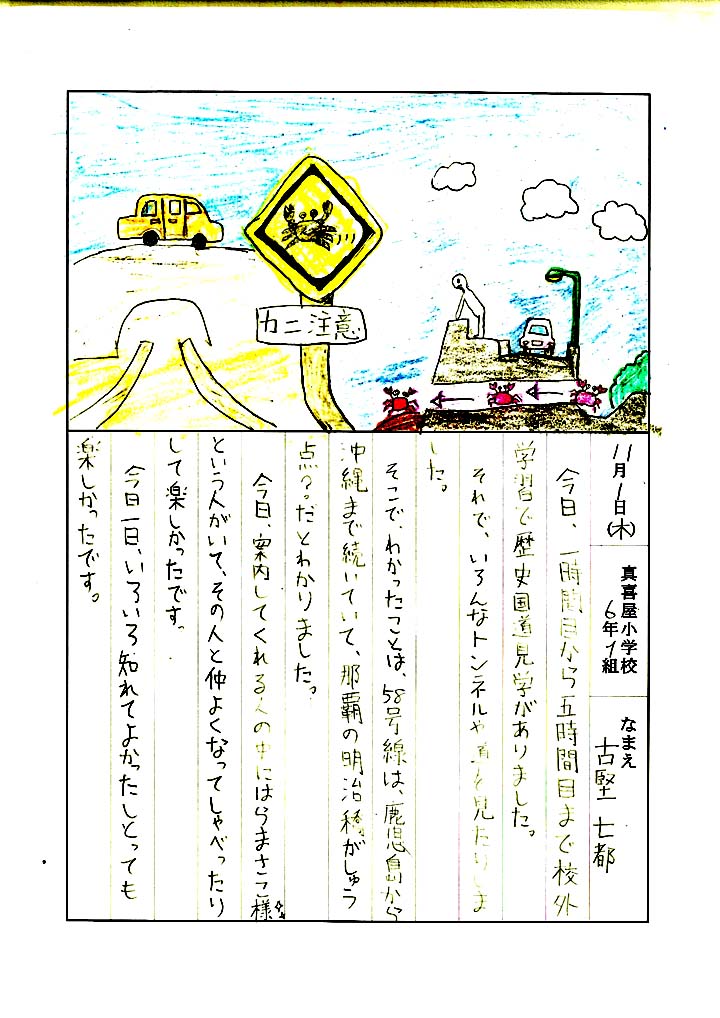 カニ注意
11月1日(木)
真喜屋小学校
6年1組
なまえ
古堅 七都
今日、一時間目から五時間目まで校外
学習で歴史国道見学がありました。
それで、いろんなトンネルや道を見たりしま
した。
そこで、わかったことは、58号線は、鹿児島から
沖縄まで続いていて、那覇の明治橋がしゅう
点?。だとわかりました。
今日、案内してくれる人の中にはらまさこ様
という人がいて、その人と仲よくなってしゃべったり
して楽しかったです。
今日一日、いろいろ知れてよかったしとっても
楽しかったです。